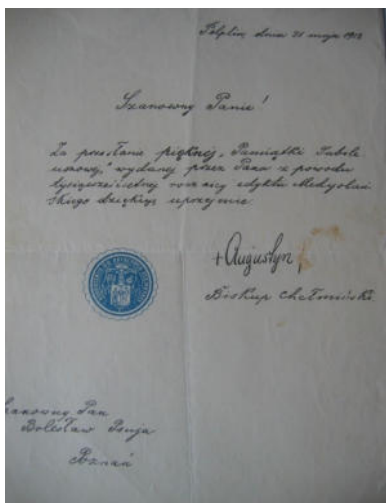 Pelplin, dnia 21 maja 1913
Szanowny Panie!
Za przesłanie pięknej „Pamiątki Jubile
uszowej," wydanej przez Pana z powodu
tysiącsześćsetnej rocznicy edyktu Medyolań
skiego dziękuję uprzejmie.
+ Augustyn,
Biskup Chełmiński.
Szanowny Pan
Bolesław Psuja
Poznań